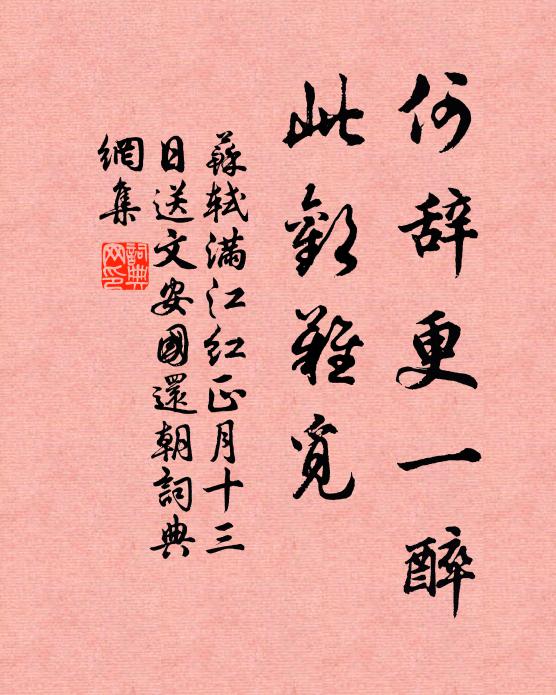 何辞更一醉
此歡難覓
蘇軾滿江紅正月十三
日送文安國還朝詞典
網集
詞典
网印